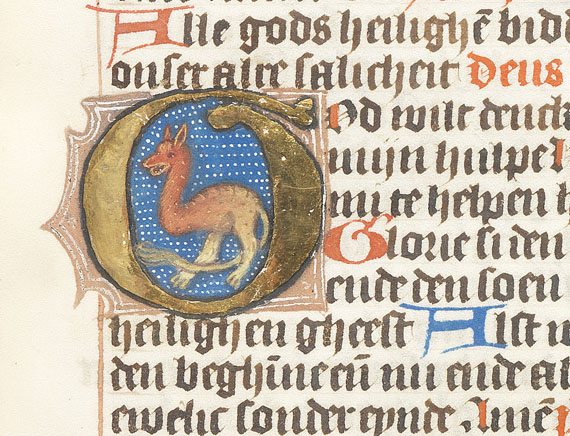 Alle gods heilighē bidd
onser alre salicheit Deus
God wilt denck
mijn hulpe
mi te helpen h
Glorie si den
ende den soen
heilighen gheest Alst
den beghīne en̄ nu ende al
ewelic sonder eynde Amē